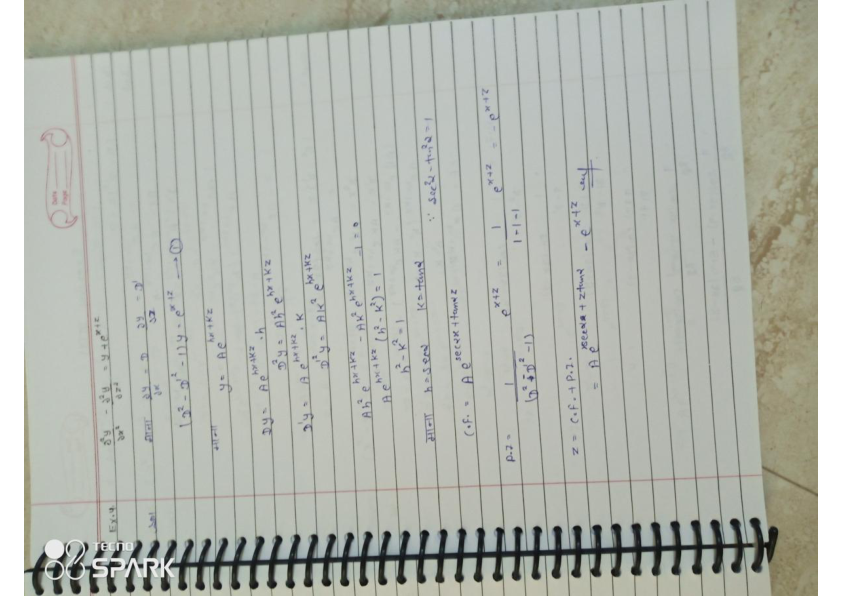 Date
Page
Ex.4. ∂²y/∂x² - ∂²y/∂z² = y + e^(x+z)
Sol माना ∂y/∂x = D ∂y/∂z = D'
(D² - D'² - 1) y = e^(x+z) → (1)
माना y = A e^(hx+kz)
Dy = A e^(hx+kz) · h
D²y = A h² e^(hx+kz)
D'y = A e^(hx+kz) · k
D'²y = A k² e^(hx+kz)
Ah² e^(hx+kz) - Ak² e^(hx+kz) - 1 = 0
A e^(hx+kz) (h² - k²) = 1
h² - k² = 1
माना h = secα k = tanα ∵ sec²α - tan²α = 1
C.F. = A e^(secαx + tanαz)
P.I = 1/(D² - D'² - 1) e^(x+z) = 1/(1-1-1) e^(x+z) = - e^(x+z)
z = C.F. + P.I.
= A e^(xsecα + ztanα) - e^(x+z)
TECNO
SPARK